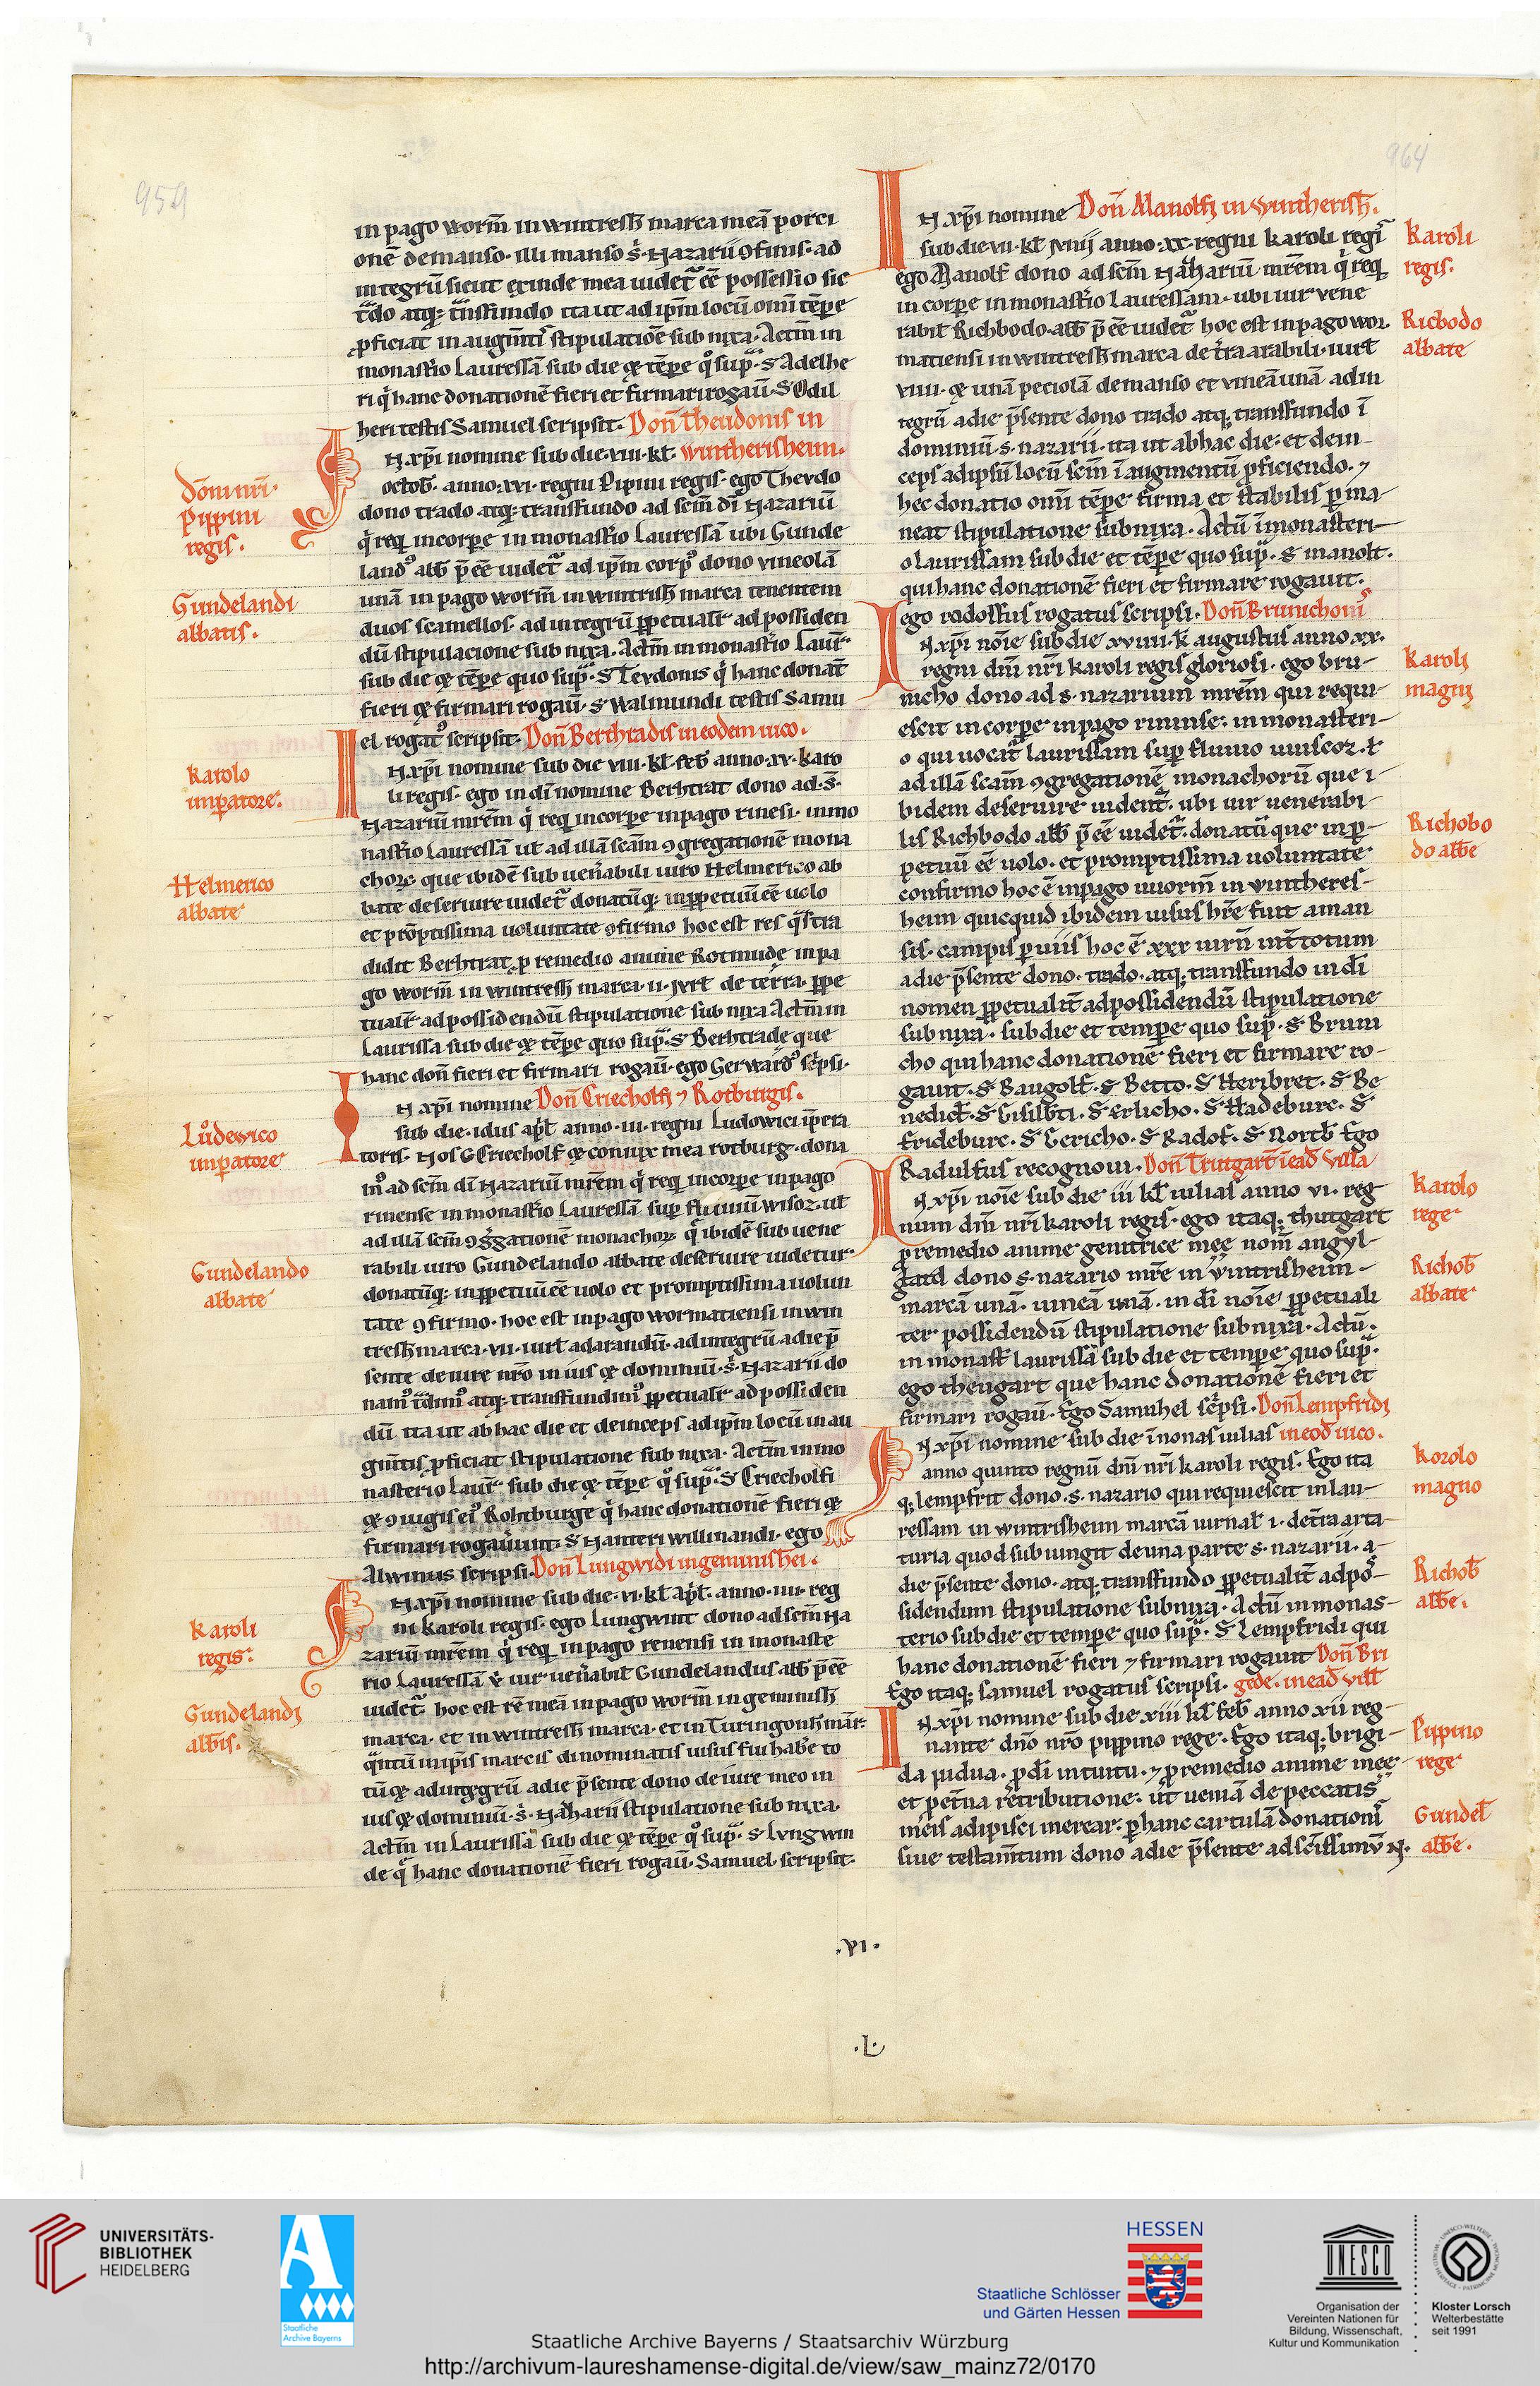 959
964
in pago worm̄ in wintresh̄ marca meā porci
onē de manso. illi manso s̄. Nazarii ꝯfinis. ad
integrū sicut exinde mea uidet᷑ ēē possessio sic
t᷑do atq; t᷑nsfundo ita ut ad ip̄m locū om̄i tēpe
ꝓficiat in augm̄tis stipulatiōe sub nixa. Actū in
monast᷑io Lauressā sub die & tēpe qͦ supᷓ. S Adelhe
ri q̇ hanc donationē fieri et firmari rogaū. S Odil
heri testis Samuel scripsit. Don̄ Theudonis in
wintherisheim.
N xp̄i nomine sub die. viii. kł.
octob̄. anno. xvi. regni Pipini regis. ego Theydo
dono trado atq; transfundo ad sc̄m dī Nazariū
q̇ req̄ incorpe in monast᷑io Lauressā ubi Gunde
landꝰ abb̄ p̄ēē uidet᷑ ad ip̄m corpꝰ dono vineolā
unā in pago worm̄ in wintrish̄ marca tenentem
duos scamellos. ad integrū ꝑpetualit̄ ad possiden
dū stipulacione sub nixa. Actū in monast᷑io Laur̄.
sub die & tēpe quo supᷓ. S Teydonis q̇ hanc donat̄
fieri & firmari rogaū. S Walmundi testis Samu
el rogatꝰ scripsit. Don̄ Berthradis in eodem uico.
N xp̄i nomine sub die viii. kł. feb̄ anno. xv. karo
li regis. ego in dī nomine Berhtrat dono ad. s̄.
Nazariū mr̄em q̇ req̄ incorpe in pago rinēsi. in mo
nast᷑io Lauressā ut ad illā sc̄am ꝯgregationē mona
choꝝ. que ibidē sub uen̄abili uiro Helmerico ab
bate deseruire uidet᷑ donatūq; inꝑpetuū ēē uolo
et prōptissima uoluntate ꝯfirmo hoc est res q̄s tra
didit Berhtrat, ꝓ remedio anime Rotmude in pa
go worm̄ in wintresh̄ marca. ii. jurł de terra. ꝑpe
tualit̄ ad possidendū stipulatione sub nixa Actū in
Laurissa sub die & tēpe quo supᷓ. S Berhtrade que
hanc don̄ fieri et firmari rogaū. ego Gerwardꝰ sc̄psi.
N xp̄i nomine Don̄ Criecholfi ⁊ Rotburgis.
sub die. idus apł anno. iii. regni Ludowici ip̄era
toris. Nos G Criecholf & coniux mea rotburg. dona
mꝰ ad sc̄m dī Nazariū mr̄em q̇ req̄ incorpe in pago
rinense in monast᷑io Lauressā sup̄ fluuiū wisoz. ut
ad illā sc̄m ꝯg̊gationē monachoꝝ q̄ ibidē sub uene
rabili uiro Gundelando abbate deseruire uidetur.
donatūq; inꝑpetuū ēē uolo et promptissima uolun
tate ꝯfirmo. hoc est in pago wormatiensi in win
tresh̄ marca. vii. iurł ad arandū. ad integrū a die p̄
sente de iure nr̄o in ius & dominiū. s̄. Nazarii do
namꝰ t᷑dimꝰ atq; transfundimꝰ ꝑpetualit̄ ad possiden
dū ita ut ab hac die et deinceps ad ip̄m locū in au
gm̄tis ꝓficiat stipulatione sub nixa. Actū in mo
nasterio Laur̄. sub die & tēpe qͦ supᷓ. S Criecholfi
& ꝯiugis eiꝰ Rohtburge q̇ hanc donationē fieri &
firmari rogauūnt. S Hanteri Willinandi. ego
Alwinus scripsi. Don̄ Lungwidi ingeminishei.
N xp̄i nomine sub die. vi. kł apł. anno. iiii. reg
ni Karoli regis. ego Lungwint dono ad sc̄m Na
zariū mr̄em q̇ req̄ in pago renensi in monaste
rio Lauressā ꝟ uir uen̄abił Gundelandus abb̄ p̄ēē
uidet᷑ hoc est rē meā in pago worm̄ in geminish̄
marca. et in wintresh̄ marca. et in Turingonh̄ mar̄.
q̄ntū in ip̄is marcis dinominatis uisus fui habe to
tū & ad integrū a die p̄sente dono de iure meo in
ius & dominiū. s̄. Naharii stipulatione sub nixa.
Actū in Laurissā sub die & tēpe qͦ supᷓ. S Lvngwin
de q̇ hanc donationē fieri rogaū. Samuel scripsit.
dom̄i nr̄i.
Pippini
regis.
Gundelandi
abbatis.
Karolo
imp̄atore.
Helmerico
abbate
Lůdewico
imp̄atore
Gundelando
abbate
Karoli
regis.
Gundelandi
abb̄is.
N xp̄i nomine Don̄ Manolfi in wintherish̄.
sub die. vii. kł ivnij anno. xx. regni karoli regis
ego Manolf dono ad sc̄m Nahariū mr̄em q̇ req̄
in corpe in monast᷑io Lauressam. ubi uir vene
rabił Richbodo. abb̄ p̄ēē uidet᷑ hoc est in pago wor
matiensi in wintresh̄ marca de t᷑ra arabili. iurł
viiii. & unā peciolā de manso et vineā unā ad in
tegrū a die p̄sente dono trado atq; transfundo ī
dominiū. s. nazarii. ita ut ab hac die. et dein
ceps ad ipsū locū sc̄m ī augmentū ꝓficiendo. ⁊
hec donatio om̄i tēpe firma et stabilis ꝑma
neat stipulatione subnixa. Actū ī monasteri
o laurissam sub die et tēpe quo supᷓ. S manolt.
qui hanc donationē fieri et firmare rogauit.
ego radolfus rogatus scripsi. Don̄ Brunichoni
N xp̄i nōie sub die xviiii. k̄ augustus anno xx.
regni dn̄i nr̄i karoli regis gloriosi. ego bru
nicho dono ad s. nazarium mr̄em qui requi
escit in corpe in pago rinense. in monasteri
o qui uocat᷑ laurissam sup̄ fluuio uuiscoz. ł
ad illā scām ꝯgregationē monachorū que i
bidem deseruire uident᷑. ubi uir uenerabi
lis Richbodo abb̄ p̄ēē uidet᷑. donatūque in ꝑ
petuū ēē uolo. et promptissima uoluntate
confirmo hoc ē in pago uuorm̄ in vuintheres
heim quicquid ibidem uisus hr̄e fui a man
sis. campis ꝑuiis hoc ē xxx iurn̄ int̄ totum
a die p̄sente dono. trado. atq; transfundo in dī
nomen ꝑpetualit̄ ad possidendū stipulatione
subnixa. sub die et tempe quo supᷓ. S Bruni
cho qui hanc donationē fieri et firmare ro
gauit. S Baugolf. S Betto. S Heribret. S Be
nedict. S Gisilb̄ti. S Erlicho. S Hadeburc. S
frideburc. S Gericho. S Radof. S Nortb̄ Ego
Radulfus recognoui. Don̄ Trutgart īead̄ villa
N xp̄i nōie sub die iii kł iulias anno vi. reg
num dn̄i nr̄i karoli regis. ego itaq; thutgart
ꝓ remedio anime genitrice mee nom̄ angyl
gard dono s. nazario mr̄e in vuintrisheim
marcā unā. uineā unā. in dī nōie ꝑpetuali
ter possidendū stipulatione subnixa. Actū.
in monast̄ laurissā sub die et tempe quo supᷓ.
ego theugart que hanc donationē fieri et
firmari rogaū. Ego Samuhel sc̄psi. Don̄ Lempfridi
N xp̄i nomine sub die ī nonas iulias in eod̄ uico.
anno quinto regnū dn̄i nr̄i karoli regis. Ego ita
q; lempfrit dono. s. nazario qui requiescit in lau
ressam in wintrisheim marcā iurnał i. de t᷑ra arta
turia quod subiungit de una parte s. nazarii. a
die p̄sente dono. atq; transfundo ꝑpetualit̄ ad pos
sidendum stipulatione subnixa. Actū in monas
terio sub die et tempe quo supᷓ. S Lempfridi qui
hanc donationē fieri ⁊ firmari rogauit Don̄ Bri
Ego itaq; samuel rogatus scripsi. gide. in ead̄ vill̄
N xp̄i nomine sub die xiii kł feb̄ anno xii reg
nante dn̄o nr̄o pippino rege. Ego itaq; brigi
da uidua. ꝓ dī intuitu. ⁊ ꝓ remedio anime mee
et ꝑet̄na retributione. ut ueniā de peccatis
meis adipisci merear. ꝑ hanc cartulā donationis
siue testam̄tum dono a die p̄sente ad sc̄issimū N.
Karoli
regis.
Ricbodo
abbate
Karoli
magni
Richobo
do abb̄e
Karolo
rege
Richob̄
abbate
Korolo
magno
Richob̄
abb̄e.
Pippino
rege
Gundel̄
abb̄e.
.VI.
.L.
UNIVERSITÄTS-
BIBLIOTHEK
HEIDELBERG
A
Staatliche
Archive Bayerns
HESSEN
Staatliche Schlösser
und Gärten Hessen
UNESCO
Organisation der
Vereinten Nationen für
Bildung, Wissenschaft,
Kultur und Kommunikation
WORLD HERITAGE • PATRIMOINE MONDIAL
Kloster Lorsch
Welterbestätte
seit 1991
Staatliche Archive Bayerns / Staatsarchiv Würzburg
http://archivum-laureshamense-digital.de/view/saw_mainz72/0170